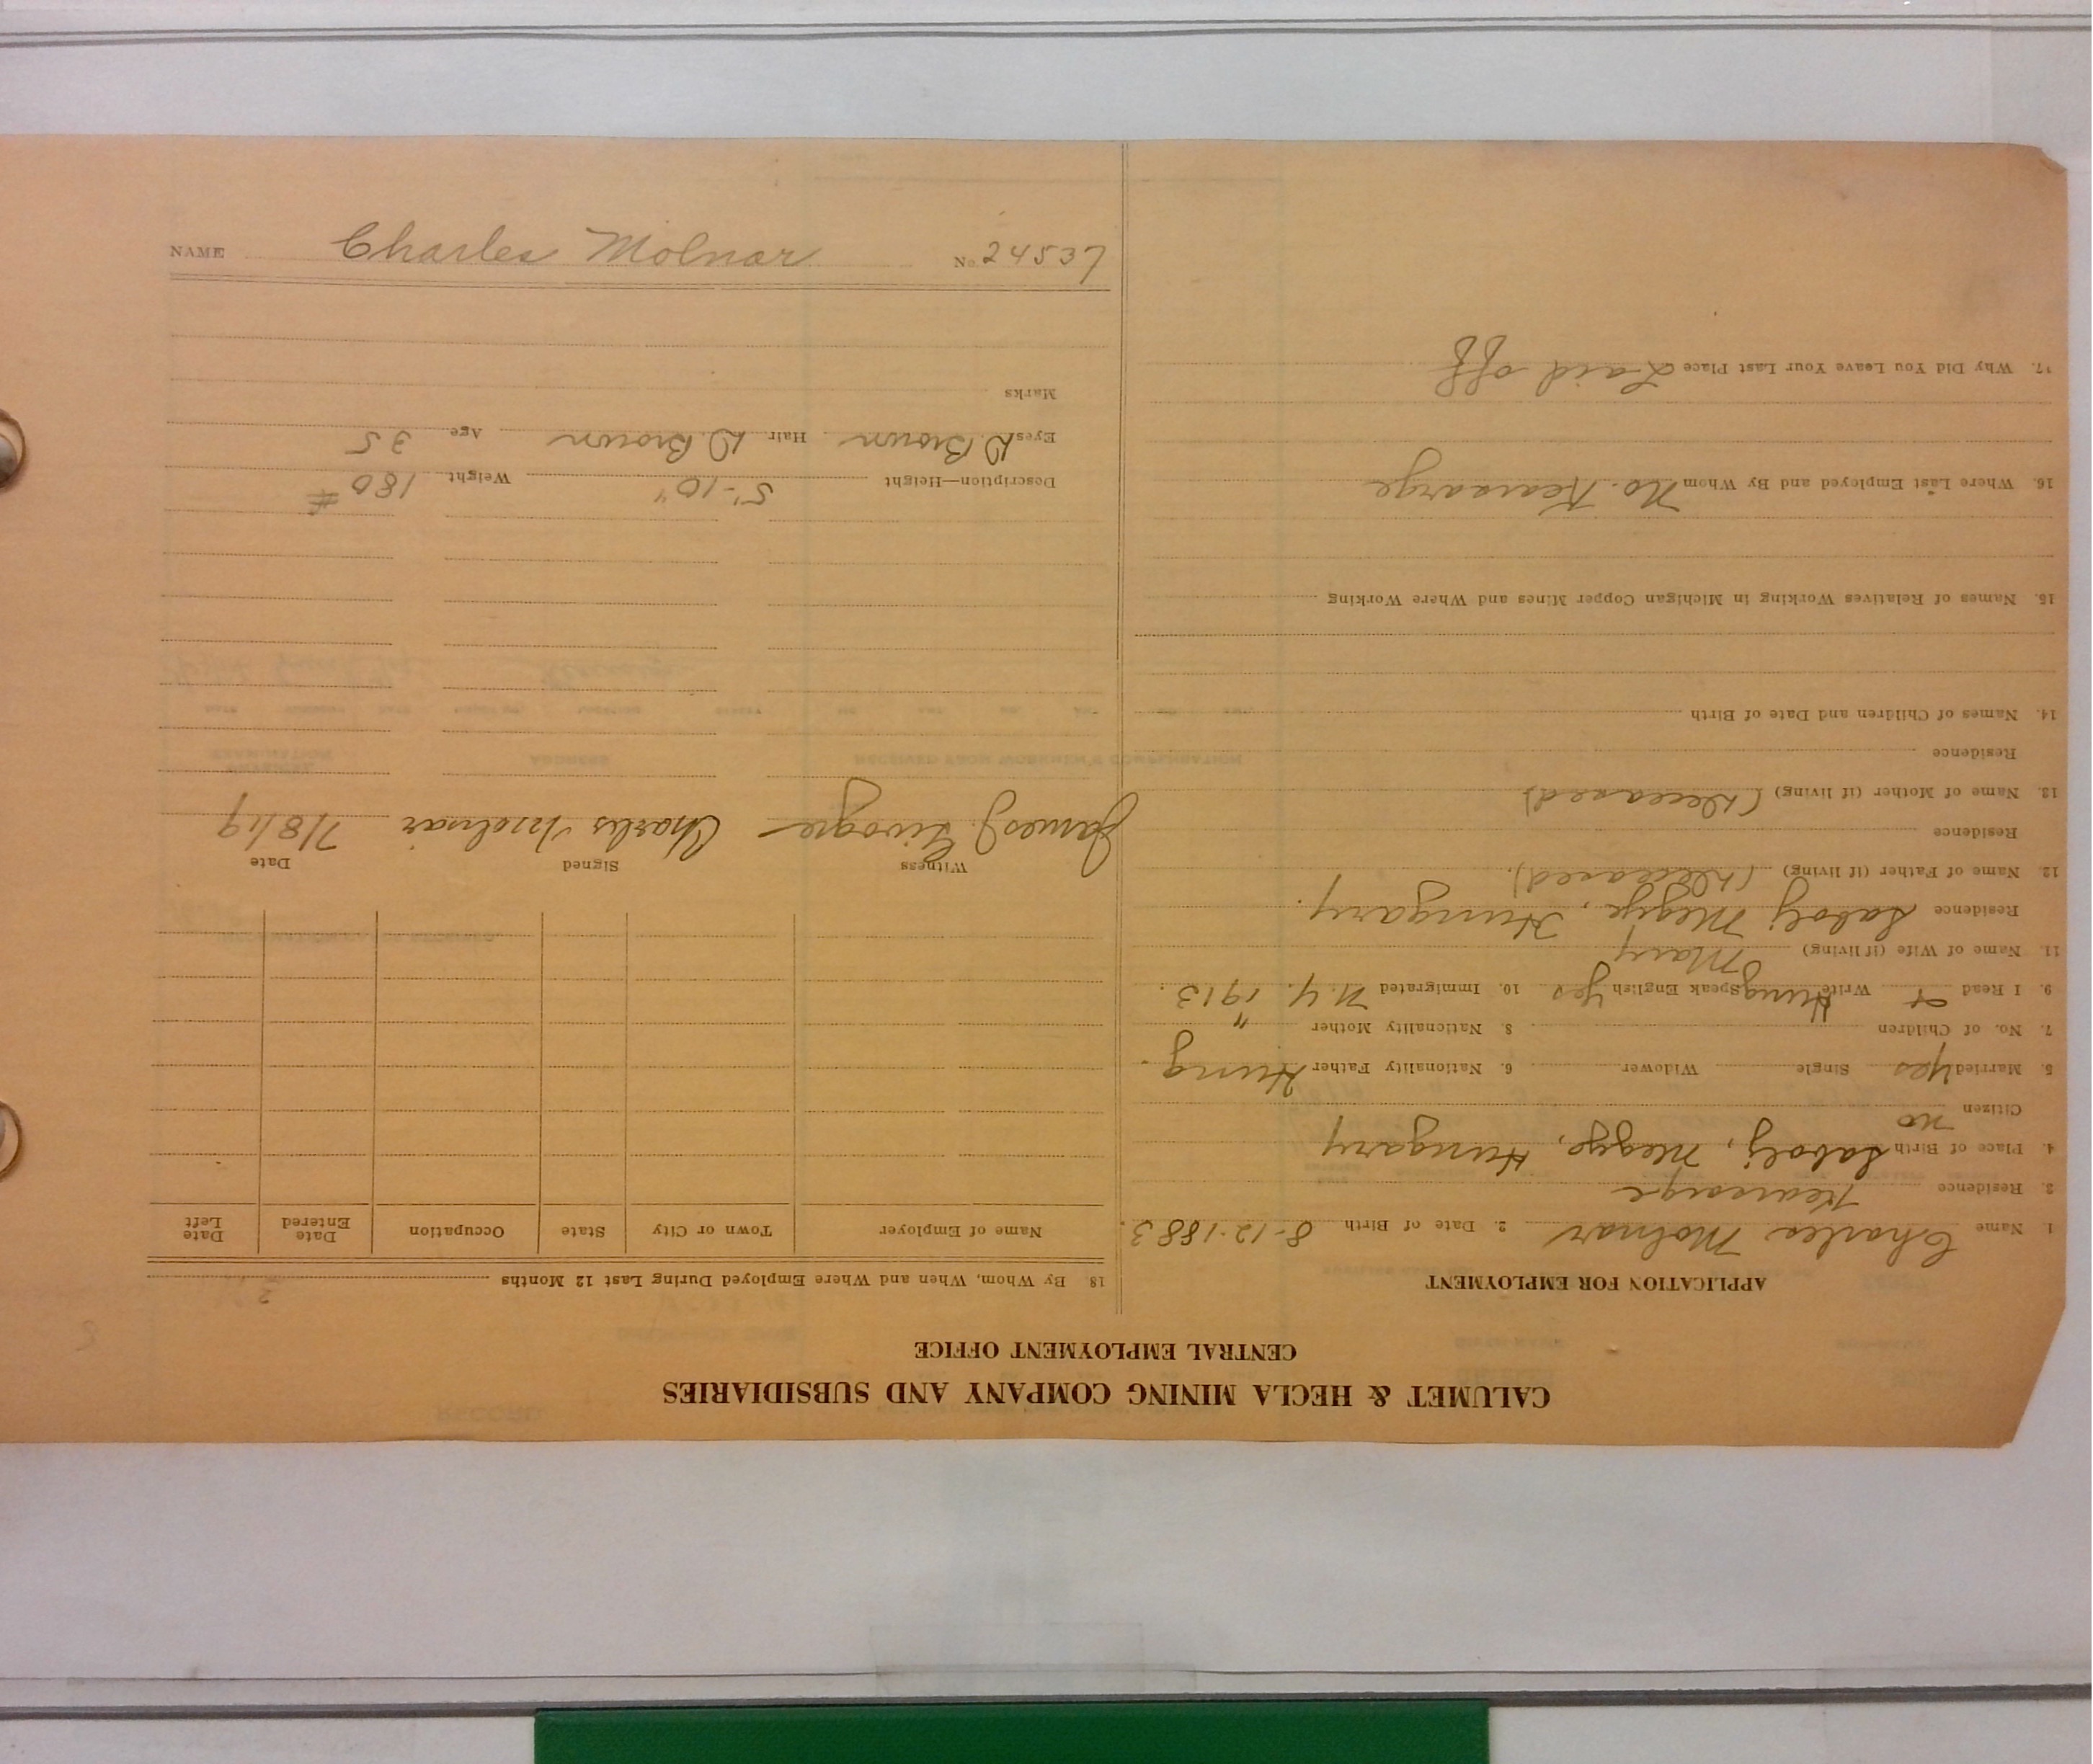 CALUMET & HECLA MINING COMPANY AND SUBSIDIARIES
CENTRAL EMPLOYMENT OFFICE
APPLICATION FOR EMPLOYMENT
1. Name Charles Molnar 2. Date of Birth 8-12-1883.
3. Residence Kearsarge
4. Place of Birth Sabolj, Megye, Hungary
Citizen no
5. Married Yes Single Widower 6. Nationality Father Hung.
7. No. of Children 8. Nationality Mother "
9. I Read & Write Hung Speak English Yes 10. Immigrated N.Y. 1913.
11. Name of Wife (if living) Mary
Residence Sabolj Megye, Hungary.
12. Name of Father (if living) (Deceased).
Residence
13. Name of Mother (if living) (Deceased)
Residence
14. Names of Children and Date of Birth
15. Names of Relatives Working in Michigan Copper Mines and Where Working
16. Where Last Employed and By Whom No. Kearsarge
17. Why Did You Leave Your Last Place Laid off
18. By Whom, When and Where Employed During Last 12 Months
Name of Employer Town or City State Occupation Date Entered Date Left
Witness Signed Date
James J. Charles Molnar 7/8/19
Description—Height 5'-10" Weight 180 #
Eyes D. Brown Hair D. Brown Age 35
Marks
NAME Charles Molnar No 24537